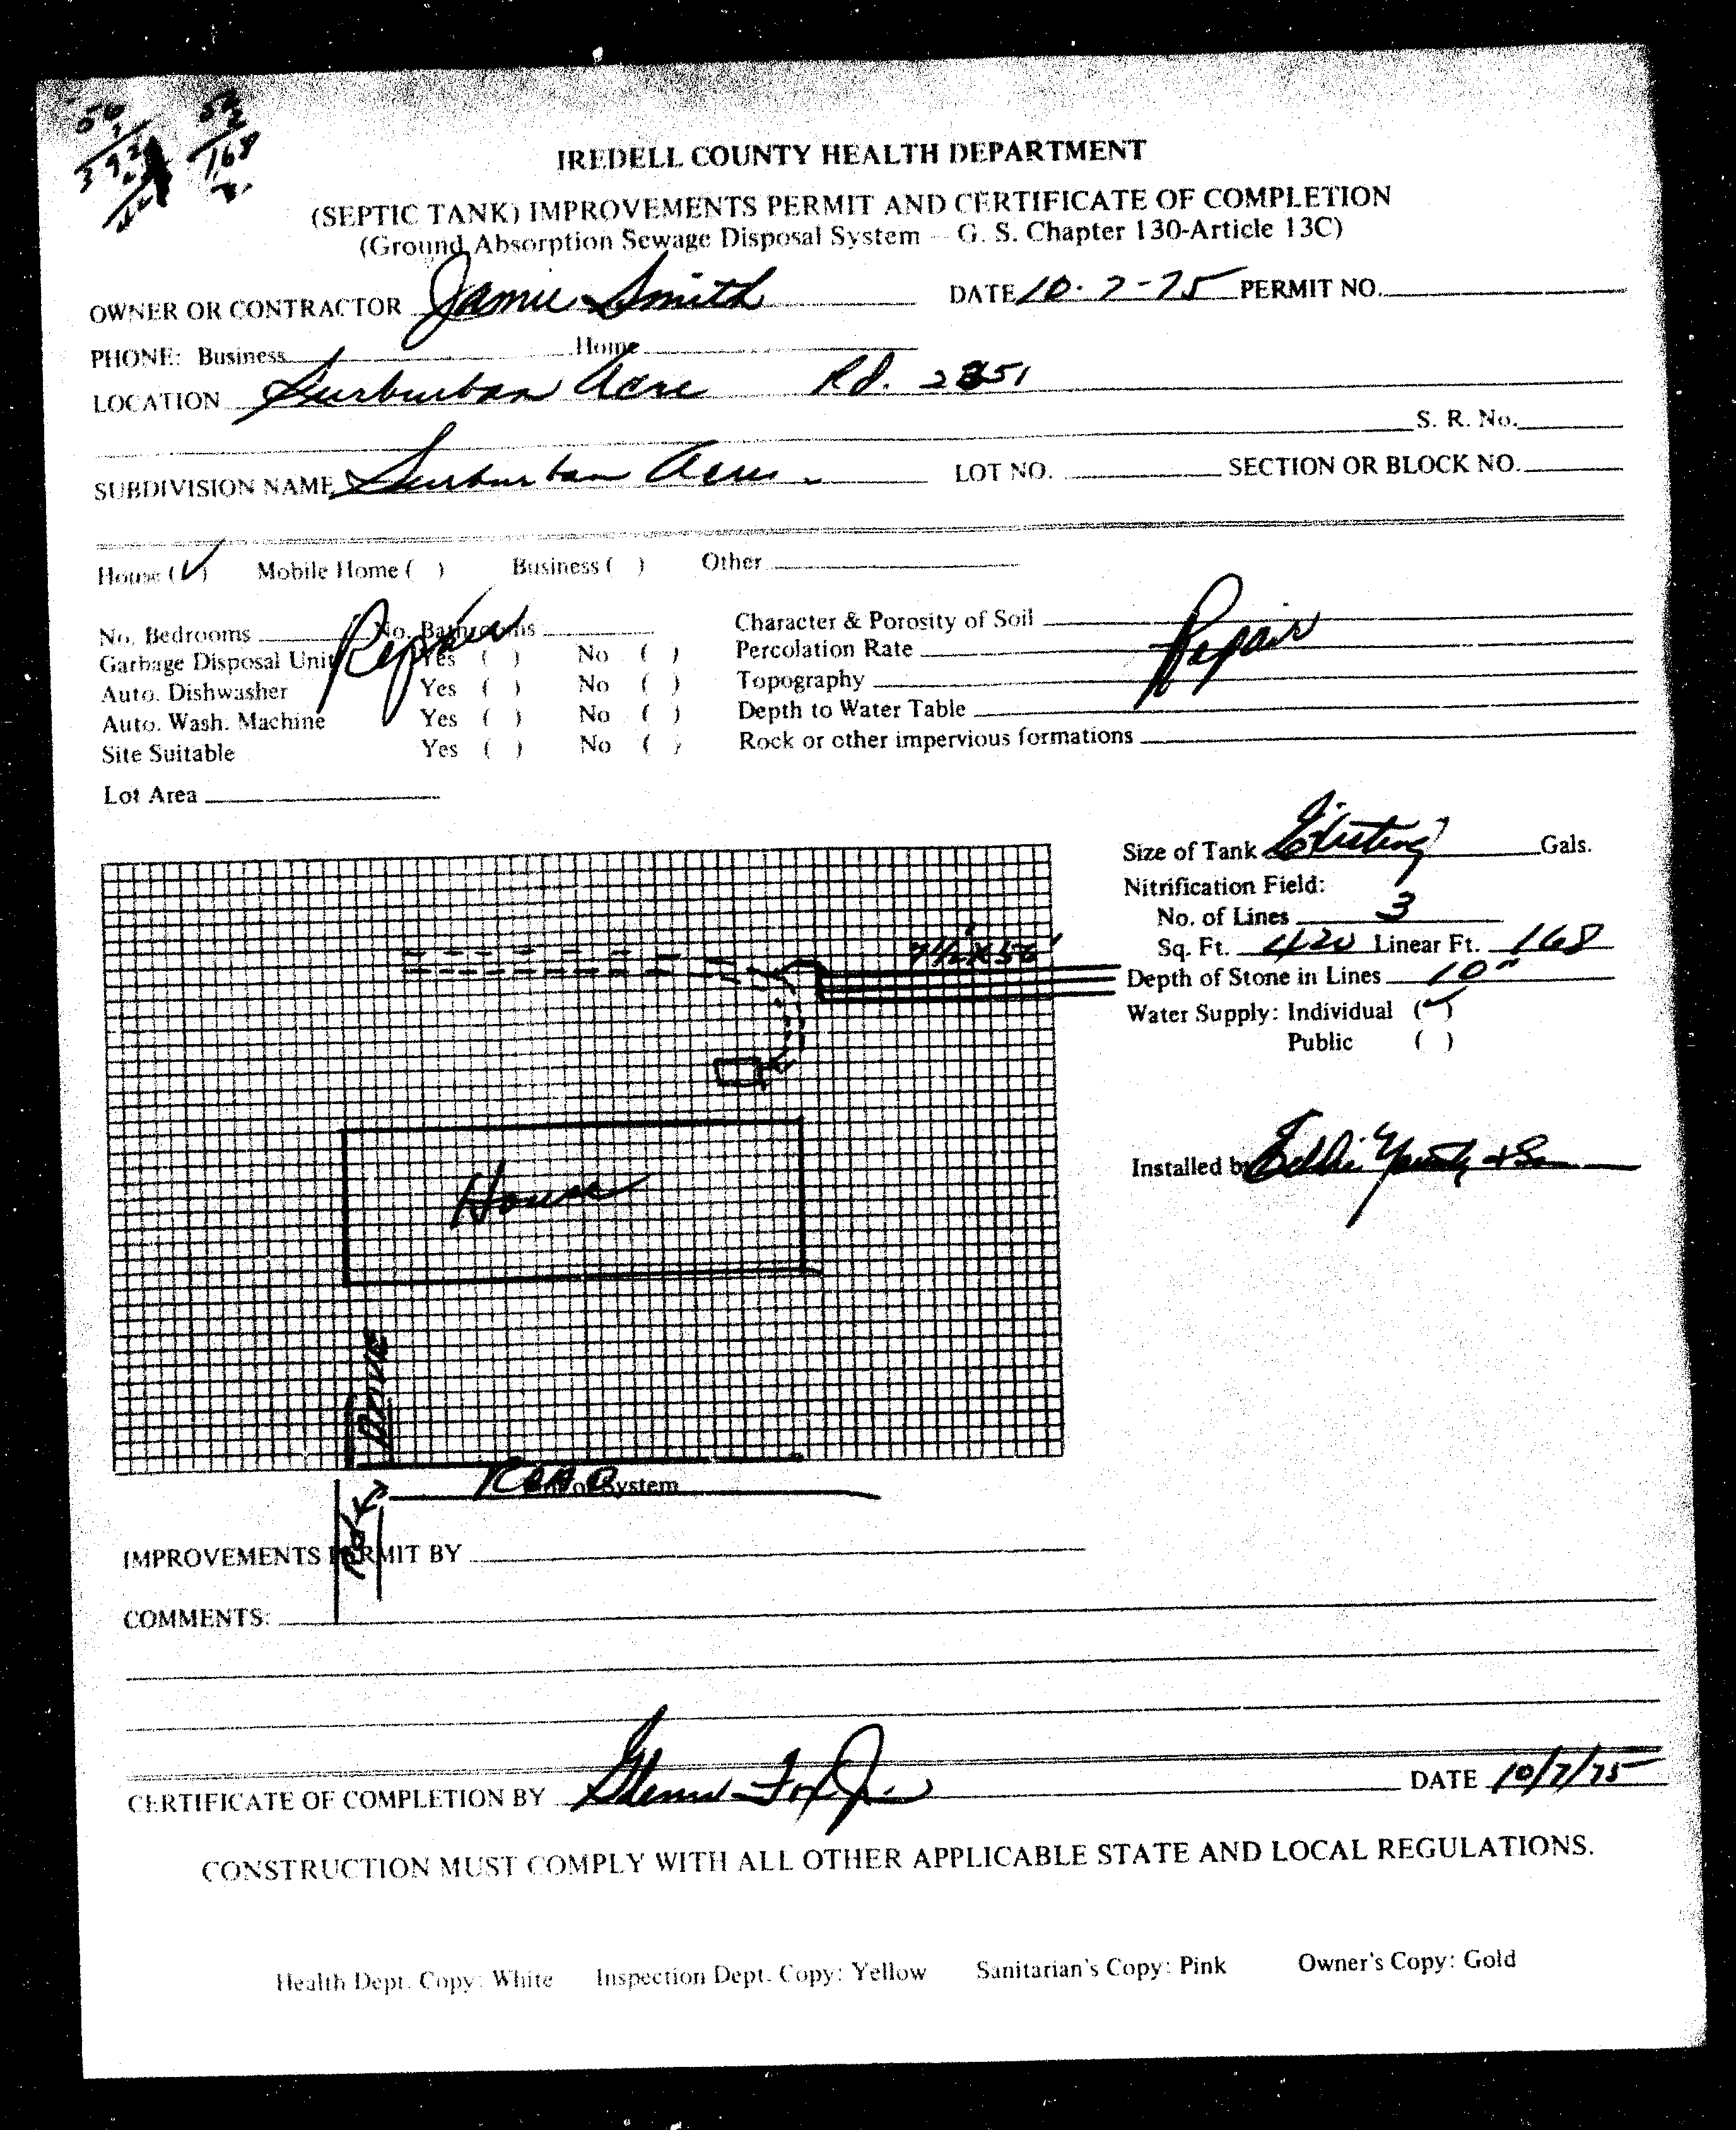 50
52
168
IREDELL COUNTY HEALTH DEPARTMENT
(SEPTIC TANK) IMPROVEMENTS PERMIT AND CERTIFICATE OF COMPLETION
(Ground Absorption Sewage Disposal System — G. S. Chapter 130-Article 13C)
OWNER OR CONTRACTOR Jamie Smith DATE 10-7-75 PERMIT NO.
PHONE: Business Home
LOCATION Surburban Acre Rd. 2351
S. R. No.
SUBDIVISION NAME Surburban Acres. LOT NO. SECTION OR BLOCK NO.
House (✓) Mobile Home ( ) Business ( ) Other
No. Bedrooms No. Bathrooms Character & Porosity of Soil
Repair Repair
Garbage Disposal Unit Yes ( ) No ( ) Percolation Rate
Auto. Dishwasher Yes ( ) No ( ) Topography
Auto. Wash. Machine Yes ( ) No ( ) Depth to Water Table
Site Suitable Yes ( ) No ( ) Rock or other impervious formations
Lot Area
Size of Tank Existing Gals.
Nitrification Field:
No. of Lines 3
7 1/2 x 56'
Sq. Ft. 420 Linear Ft. 168
Depth of Stone in Lines 10"
Water Supply: Individual (✓)
Public ( )
House
Installed by Eddie + Son
Drive
Road
of System
IMPROVEMENTS PERMIT BY
Rd
COMMENTS:
CERTIFICATE OF COMPLETION BY Glenn Fox Jr. DATE 10/7/75
CONSTRUCTION MUST COMPLY WITH ALL OTHER APPLICABLE STATE AND LOCAL REGULATIONS.
Health Dept. Copy: White Inspection Dept. Copy: Yellow Sanitarian's Copy: Pink Owner's Copy: Gold